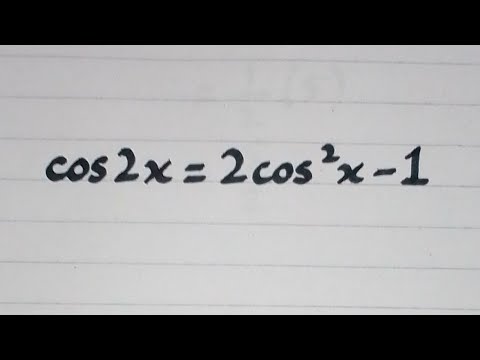 cos2x = 2cos²x - 1